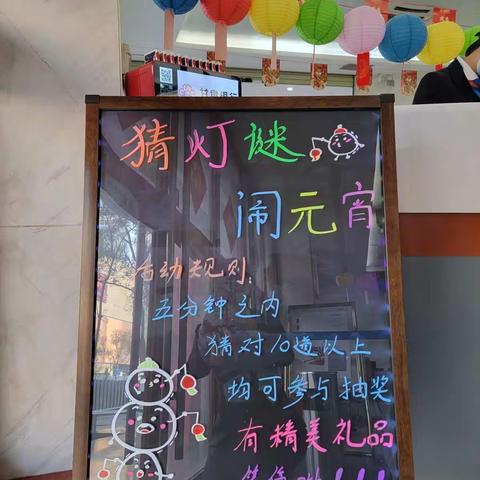 猜灯谜
闹元宵
活动规则:
五分钟之内
猜对10道以上
均可参与抽奖
有精美礼品